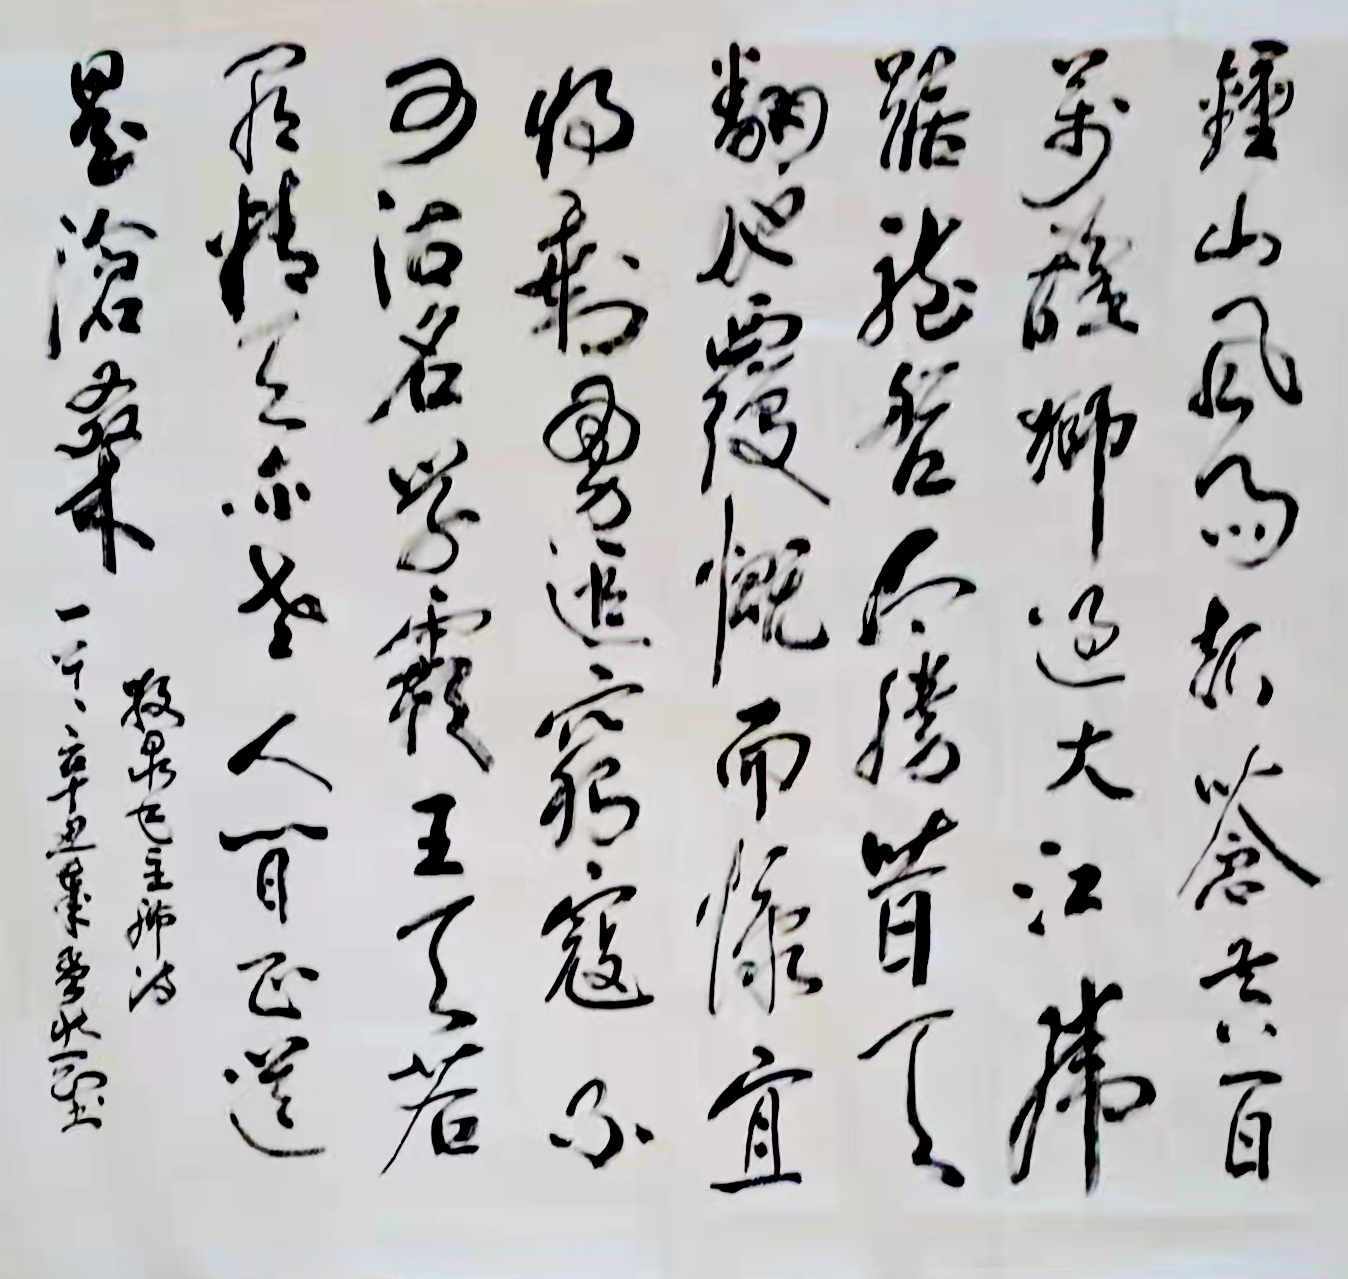 鍾山風雨起蒼黃百
萬雄師過大江虎
踞龍盤今勝昔天
翻地覆慨而慷宜
將剩勇追窮寇不
可沽名學霸王天若
有情天亦老人間正道
是滄桑
敬录毛主席诗
辛丑